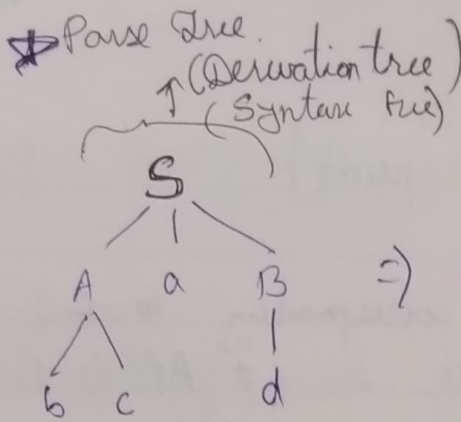 Parse Tree.
(Derivation tree)
(Syntax tree)
S
A a B =>
b c d